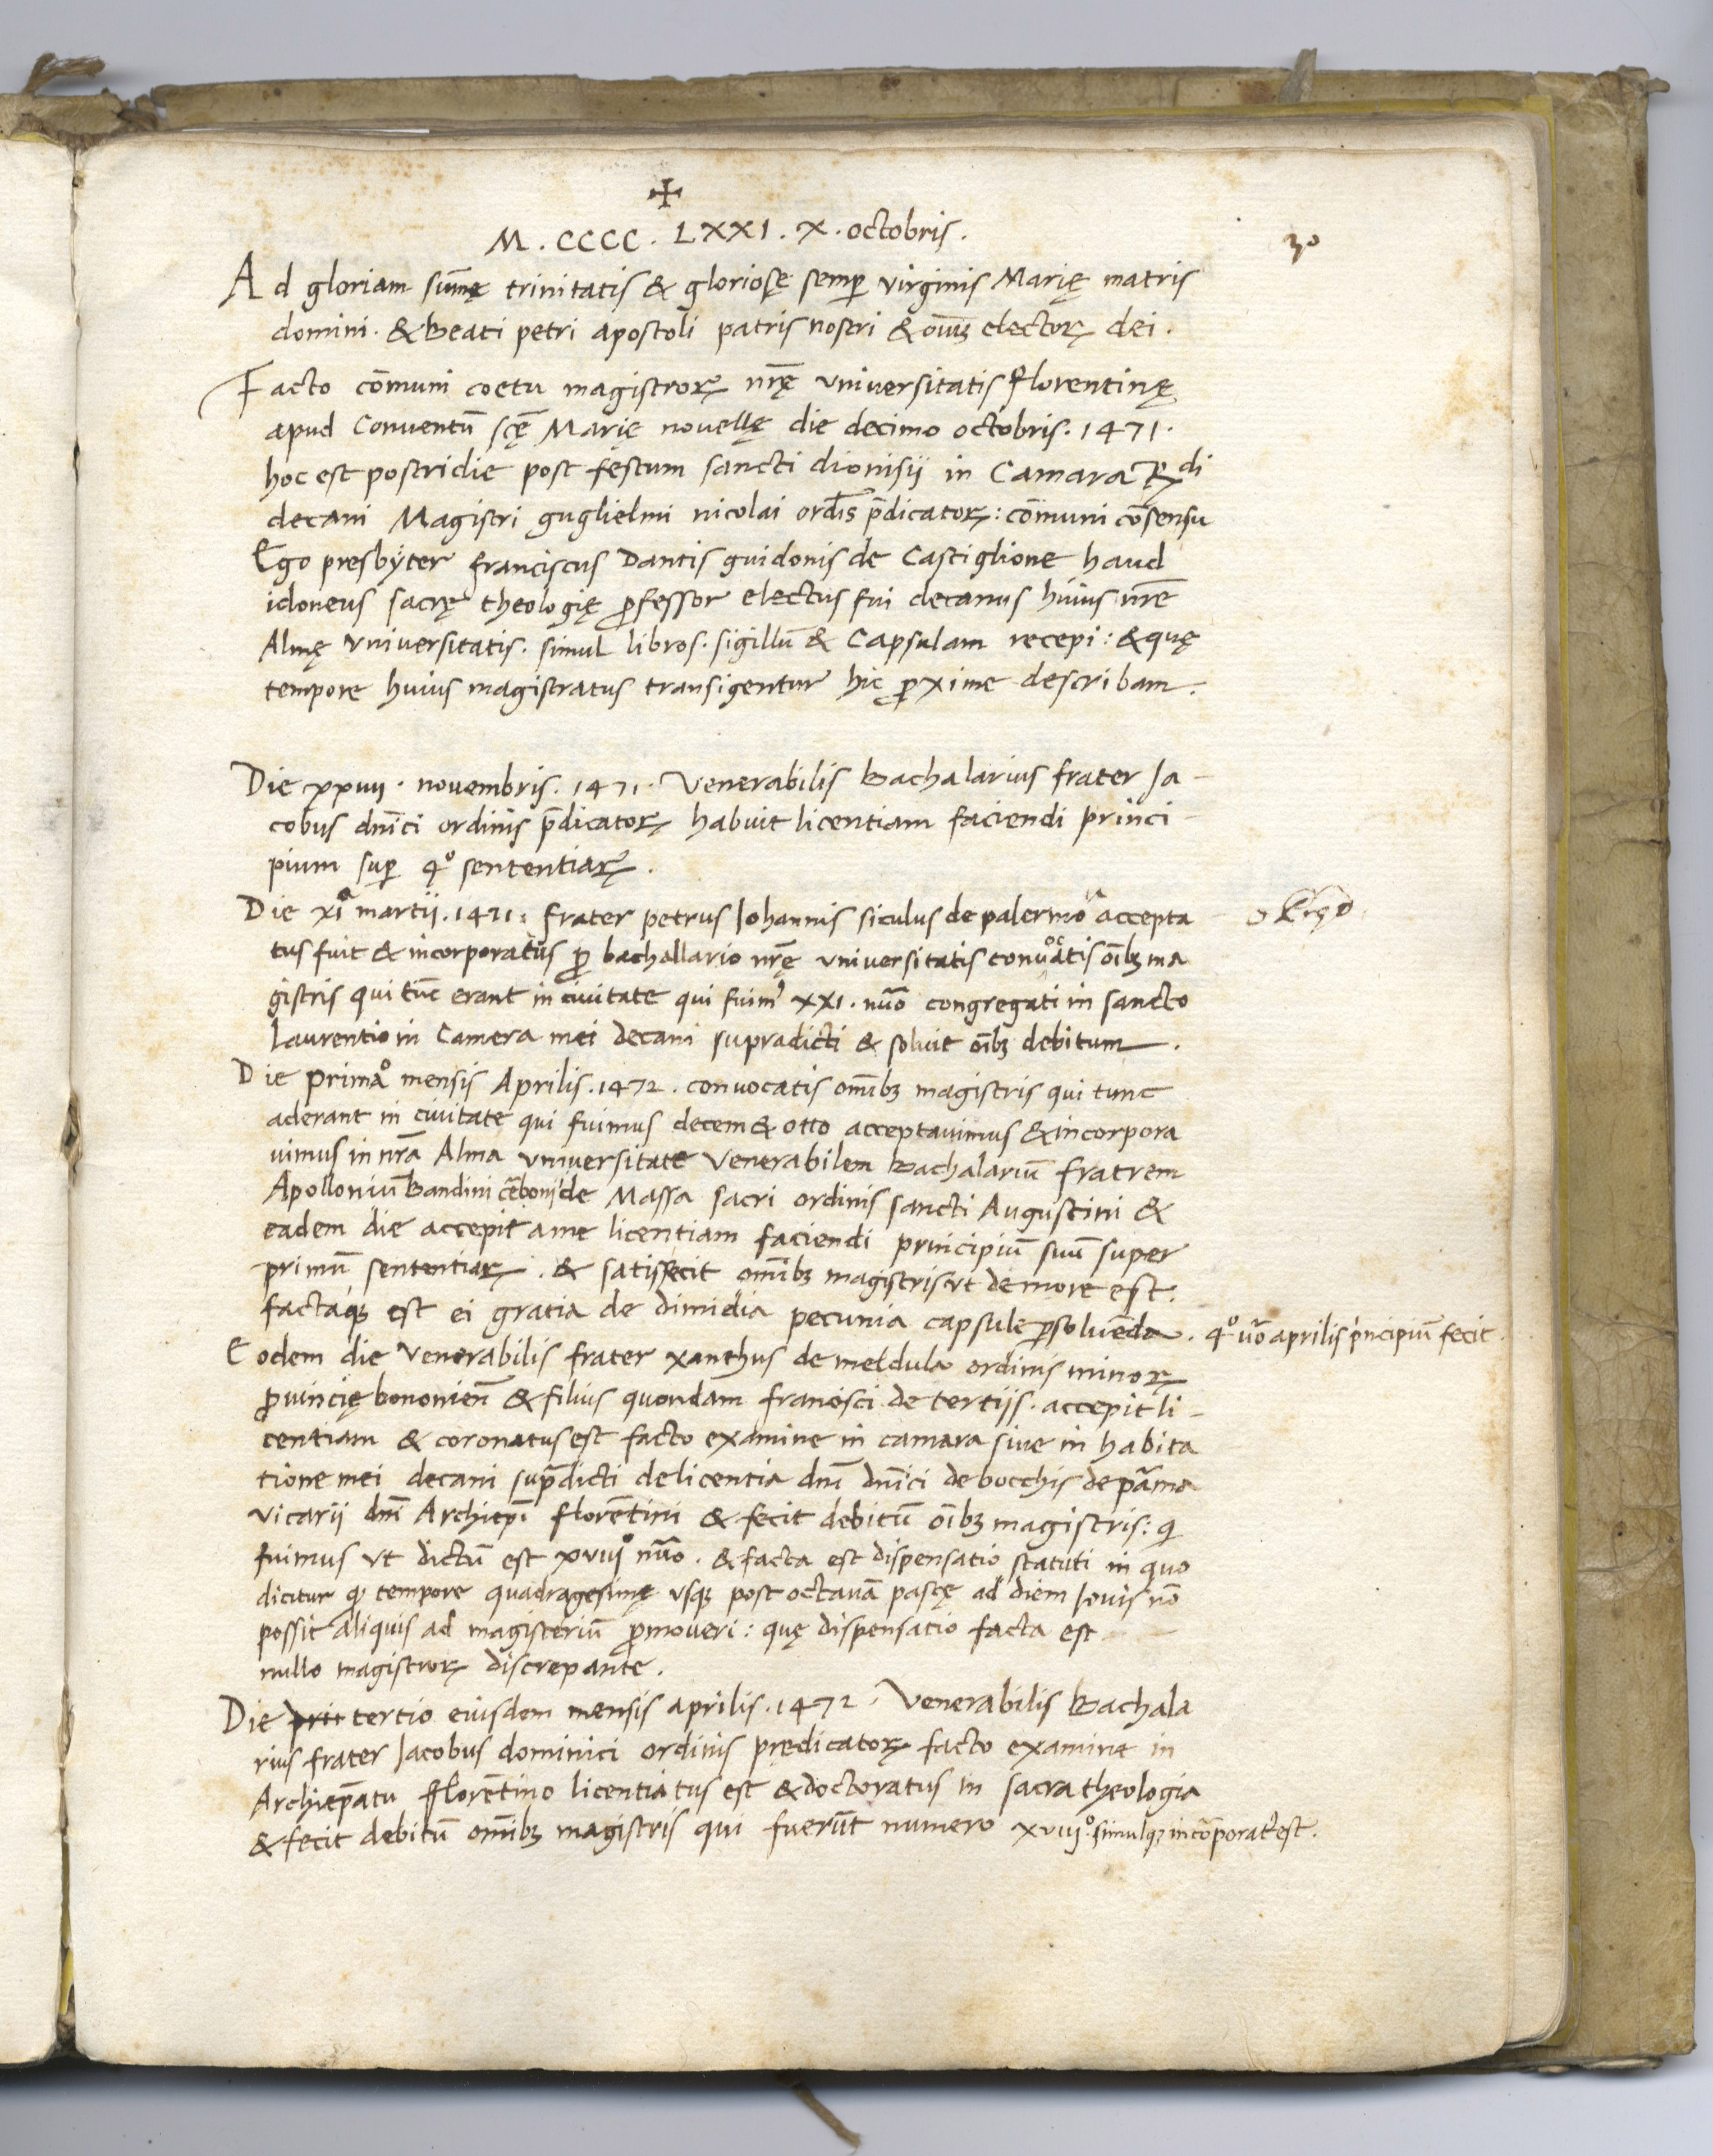 ✠
M . CCCC . LXXI . X . octobris .
30
Ad gloriam sūmę trinitatis & gloriosę semꝑ virginis Marię matris
domini . & Beati petri apostoli patris nostri & oīuꝫ electoꝝ dei .
Facto cōmuni coetu magistroꝝ nr̄ę universitatis Florentinę
apud Conventū scę̄ Marię novellę die decimo octobris . 1471 .
hoc est postridie post festum sancti dionisii in Camara R.di
decani Magistri guglielmi nicolai ordīs p̄dicatoꝝ : cōmuni cōsensu
Ego presbÿter franciscus Dantis guidonis de Castiglione haud
idoneus sacrę theologię ꝓfessor electus fui decanus huius nr̄e
Almę universitatis . simul libros . sigillū & Capsulam recepi : & quę
tempore huius magistratus transigentur hic ꝓxime describam .
Die xxvii . novembris . 1471 . Venerabilis Bachalarius frater Ja-
cobus dn̄ici ordinis p̄dicatoꝝ habuit licentiam faciendi princi-
pium suꝑ 4º sententiaꝝ .
Die xiª martii . 1471 : frater petrus Johannis siculus de palermo accepta
tus fuit & incorporatus ꝓ bachallario nr̄ę universitatis convocātis oībꝫ ma
gistris qui tūc erant in civitate qui fuimꝰ xxi . nūo congregati in sancto
Laurentio in Camera mei decani supradicti & solvit oībꝫ debitum .
Die primaº mensis Aprilis . 1472 . convocatis om̄ibꝫ magistris qui tunc
aderant in civitate qui fuimus decem & otto acceptavimus & incorpora
vimus in nr̄a Alma universitate Venerabilem Bachalariū fratrem
Apolloniū Bandini cēboni de Massa sacri ordinis sancti Augustini &
eadem die accepit a me licentiam faciendi principiū suū super
primū sententiaꝝ . & satisfecit om̄ibꝫ magistris ut de more est .
factaqꝫ est ei gratia de dimidia pecunia capsule ꝑsolvēda . 4º vō aprilis p̍ncipiū fecit .
Eodem die Venerabilis frater xanthus de meldula ordinis minoꝝ
ꝓvincię bononien̄ & filius quondam francisci de tertiis . accepit li-
centiam & coronatus est facto examine in camara sive in habita
tione mei decani sup̄dicti de licentia dn̄i dn̄ici de bocchis de pāma
vicarii dn̄i Archiepī florētini & fecit debitū oībꝫ magistris : qi
fuimus ut dictū est xviiiº nūo . & facta est dispensatio statuti in quo
dicitur qꝫ tempore quadragesimę usqꝫ post octavā pascę ad diem Jovis nō
possit aliquis ad magisteriū ꝓmoveri : quę dispensatio facta est
nullo magistroꝝ discrepante .
Die prit tertio eiusdem mensis aprilis . 1472 . Venerabilis Bachala
rius frater Jacobus dominici ordinis predicatoꝝ facto examine in
Archiep̄atu florētino licentiatus est & doctoratus in sacra theologia
& fecit debitū om̄ibꝫ magistris qui fuerūt numero xviiiº . simulqꝫ incōrporatꝰ est .